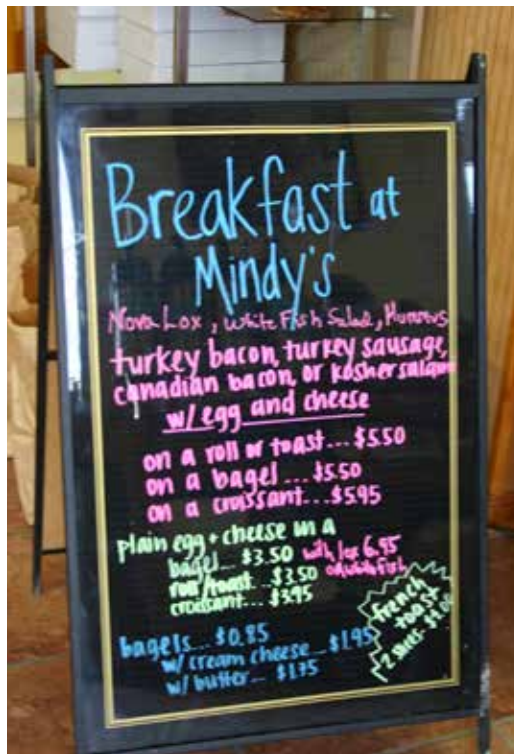 Breakfast at
Mindy's
Nova Lox, White Fish Salad, Hummus
turkey bacon, turkey sausage,
canadian bacon, or kosher salami
w/ egg and cheese
on a roll or toast... $5.50
on a bagel... $5.50
on a croissant... $5.95
plain egg + cheese on a
bagel... $3.50 with lox 6.95
roll/toast... $3.50 or white fish
croissant... $3.95
french
toast
2 slices-
bagels... $0.85
w/ cream cheese... $1.95
w/ butter... $1.75